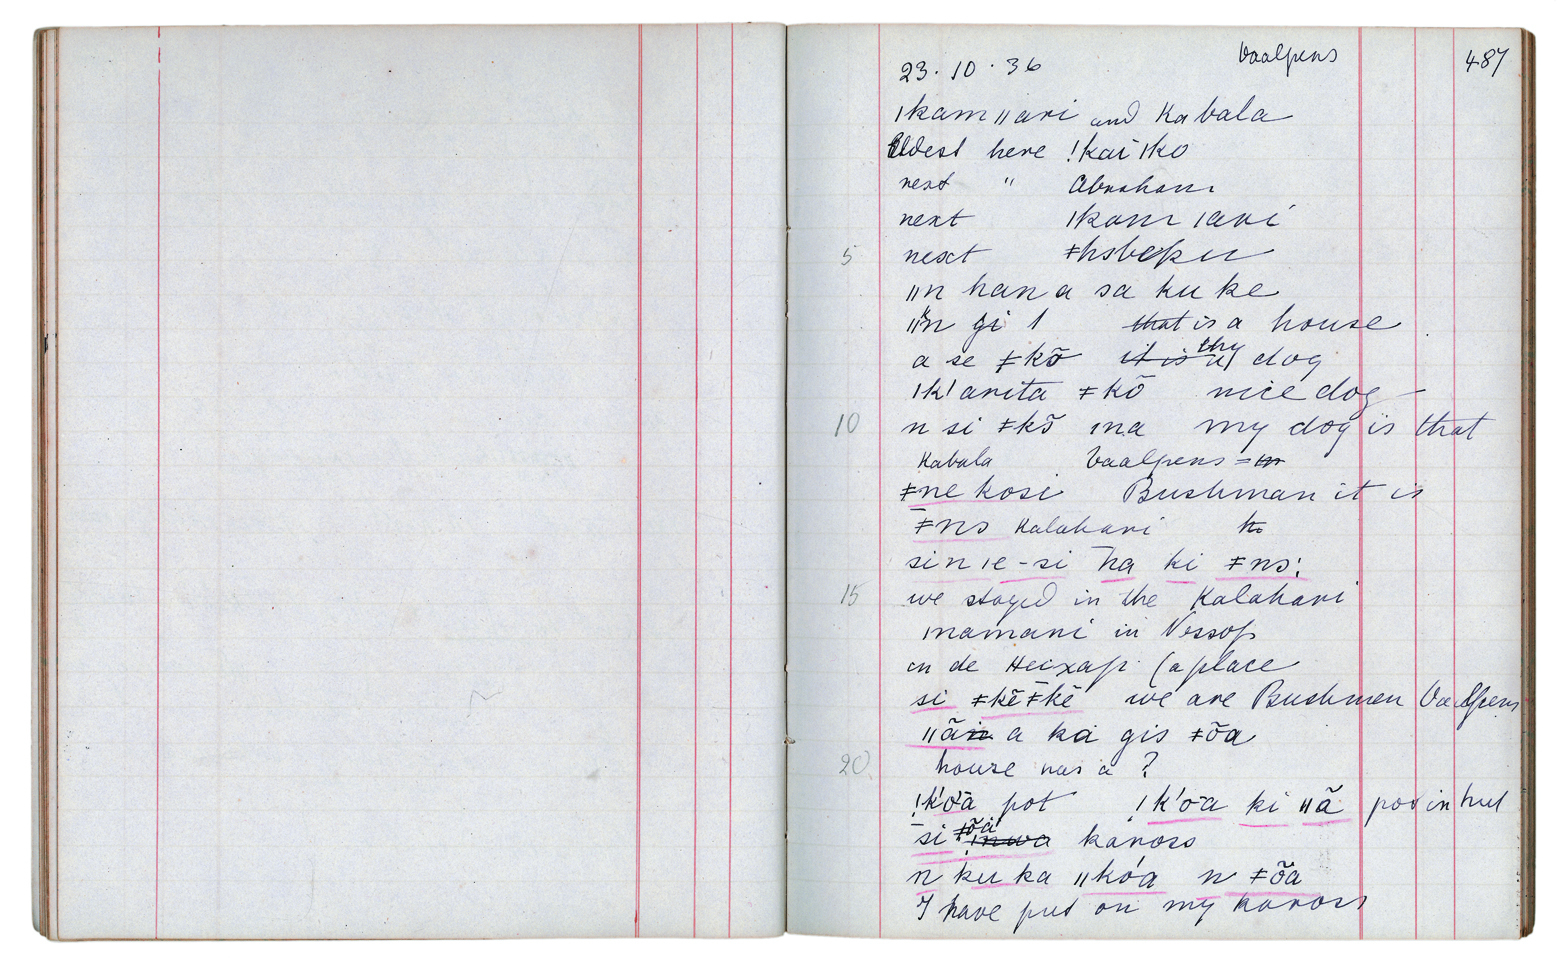 23.10.36 Vaalpens 487
ǀkam ǁari and Kabala
Eldest here !kai ǀko
next " Abraham
next ǀkam ǀari
5 next
ǁn han a sa ku ke
ǁn gi ǀ that is a house
a se ǂkõ it is thy dog
ǀkǀ arita ǂkõ nice dog
10 n si ǂkõ ɪna my dog is that
Kabala Vaalpens =
ǂne kosi Bushman it is
ǂns Kalahari
si n ɪe-si ha ki ǂns:
15 we stayed in the Kalahari
ɪnamani in Nossop
in de (a place
si ǂkē ǂkē we are Bushmen Vaalpens
ǁãn a ka gis ǂõa
20 house was a ?
!k'o'a pot !k'o-a ki ǁã pot in hut
si ǂõa ɪnwa kaross
n ku ka ǁkóa n ǂõa
I have put on my kaross